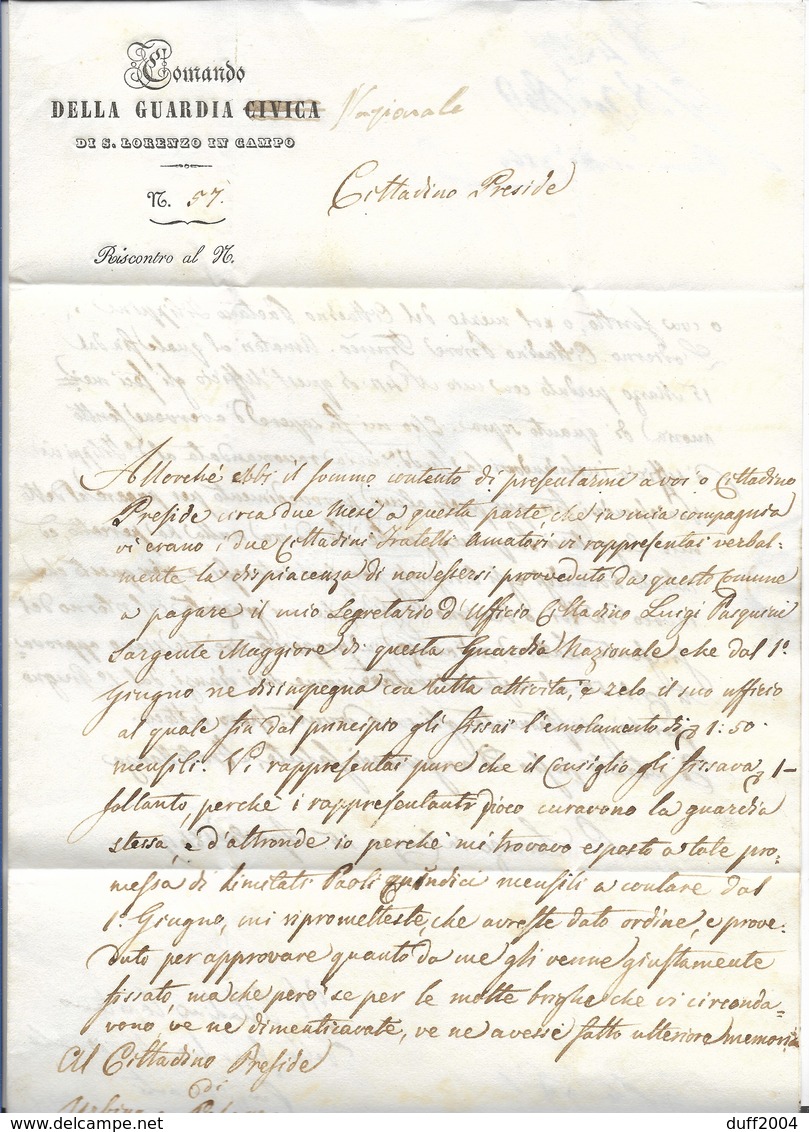 Comando
DELLA GUARDIA CIVICA Nazionale
DI S. LORENZO IN CAMPO
N. 57.
Cittadino Preside
Riscontro al N.
Allorché ebbi il sommo contento di presentarmi a voi o Cittadino
Preside circa due mesi a questa parte, che in mia compagnia
vi erano i due Cittadini Fratelli Amatori vi rappresentai verbal=
mente la dispiacenza di non essersi provveduto da questo Comune
a pagare il mio Segretario d'Ufficio Cittadino Luigi Pasquini
Sargente Maggiore di questa Guardia Nazionale che dal 1°
Giugno ne disimpegna con tutta attività, e zelo il suo ufficio
al quale fin dal principio gli fissai l'emolumento di 1:50
mensili. Vi rappresentai pure che il Consiglio gli fissava 1-
soltanto, perchè i rappresentanti poco curavono la guardia
stessa, e d'altronde io perchè mi trovavo esposto a tale pro=
messa di limitati Paoli quindici mensili a contare dal
1° Giugno, mi riprometteste, che avreste dato ordine, e prove=
duto per approvare quanto da me gli venne giustamente
fissato, ma che però se per le molte brighe che vi circonda=
vono, ve ne dimenticavate, ve ne avessi fatto ulteriore memoria
Al Cittadino Preside
di
Urbino e Pesaro
duff2004